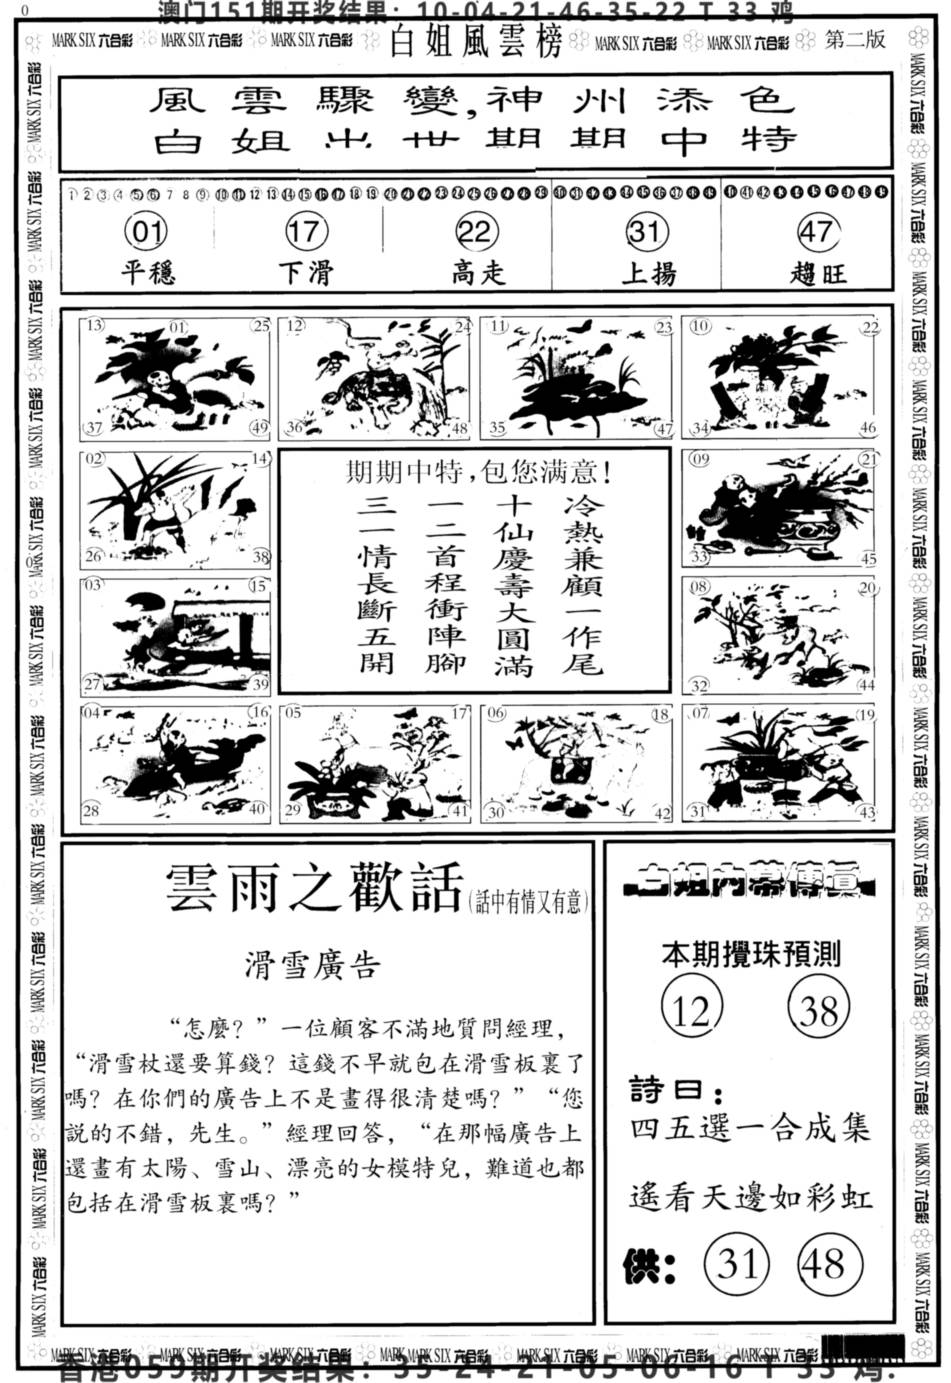 0
澳门151期开奖结果：10-04-21-46-35-22 T 33 鸡
MARK SIX 六合彩 MARK SIX 六合彩 MARK SIX 六合彩 白姐風雲榜 MARK SIX 六合彩 MARK SIX 六合彩 第二版
風雲驟變,神州添色
白姐出世期期中特
1 2 3 4 5 6 7 8 9 10 11 12 13 14 15 16 17 18 19 20 21 22 23 24 25 26 27 28 29 30 31 32 33 34 35 36 37 38 39 40 41 42 43 44 45 46 47 48 49
01 17 22 31 47
平穩 下滑 高走 上揚 趨旺
13 01 25 12 24 11 23 10 22
37 49 36 48 35 47 34 46
02 14 09 21
26 38 33 45
03 15 08 20
27 39 32 44
04 16 05 17 06 18 07 19
28 40 29 41 30 42 31 43
期期中特,包您满意!
冷熱兼顧一作尾
十仙慶壽大圓滿
一二首程衝陣腳
三一情長斷五開
雲雨之歡話(話中有情又有意)
滑雪廣告
“怎麼？”一位顧客不滿地質問經理，
“滑雪杖還要算錢？這錢不早就包在滑雪板裏了
嗎？在你們的廣告上不是畫得很清楚嗎？”“您
説的不錯，先生。”經理回答，“在那幅廣告上
還畫有太陽、雪山、漂亮的女模特兒，難道也都
包括在滑雪板裏嗎？”
白姐內幕傳真
本期攪珠預測
12 38
詩曰：
四五選一合成集
遙看天邊如彩虹
供： 31 48
MARK SIX 六合彩 MARK SIX 六合彩 MARK SIX 六合彩 MARK SIX 六合彩 MARK SIX 六合彩 MARK SIX 六合彩
香港059期开奖结果：35-24-21-05-06-16 T 33 鸡.